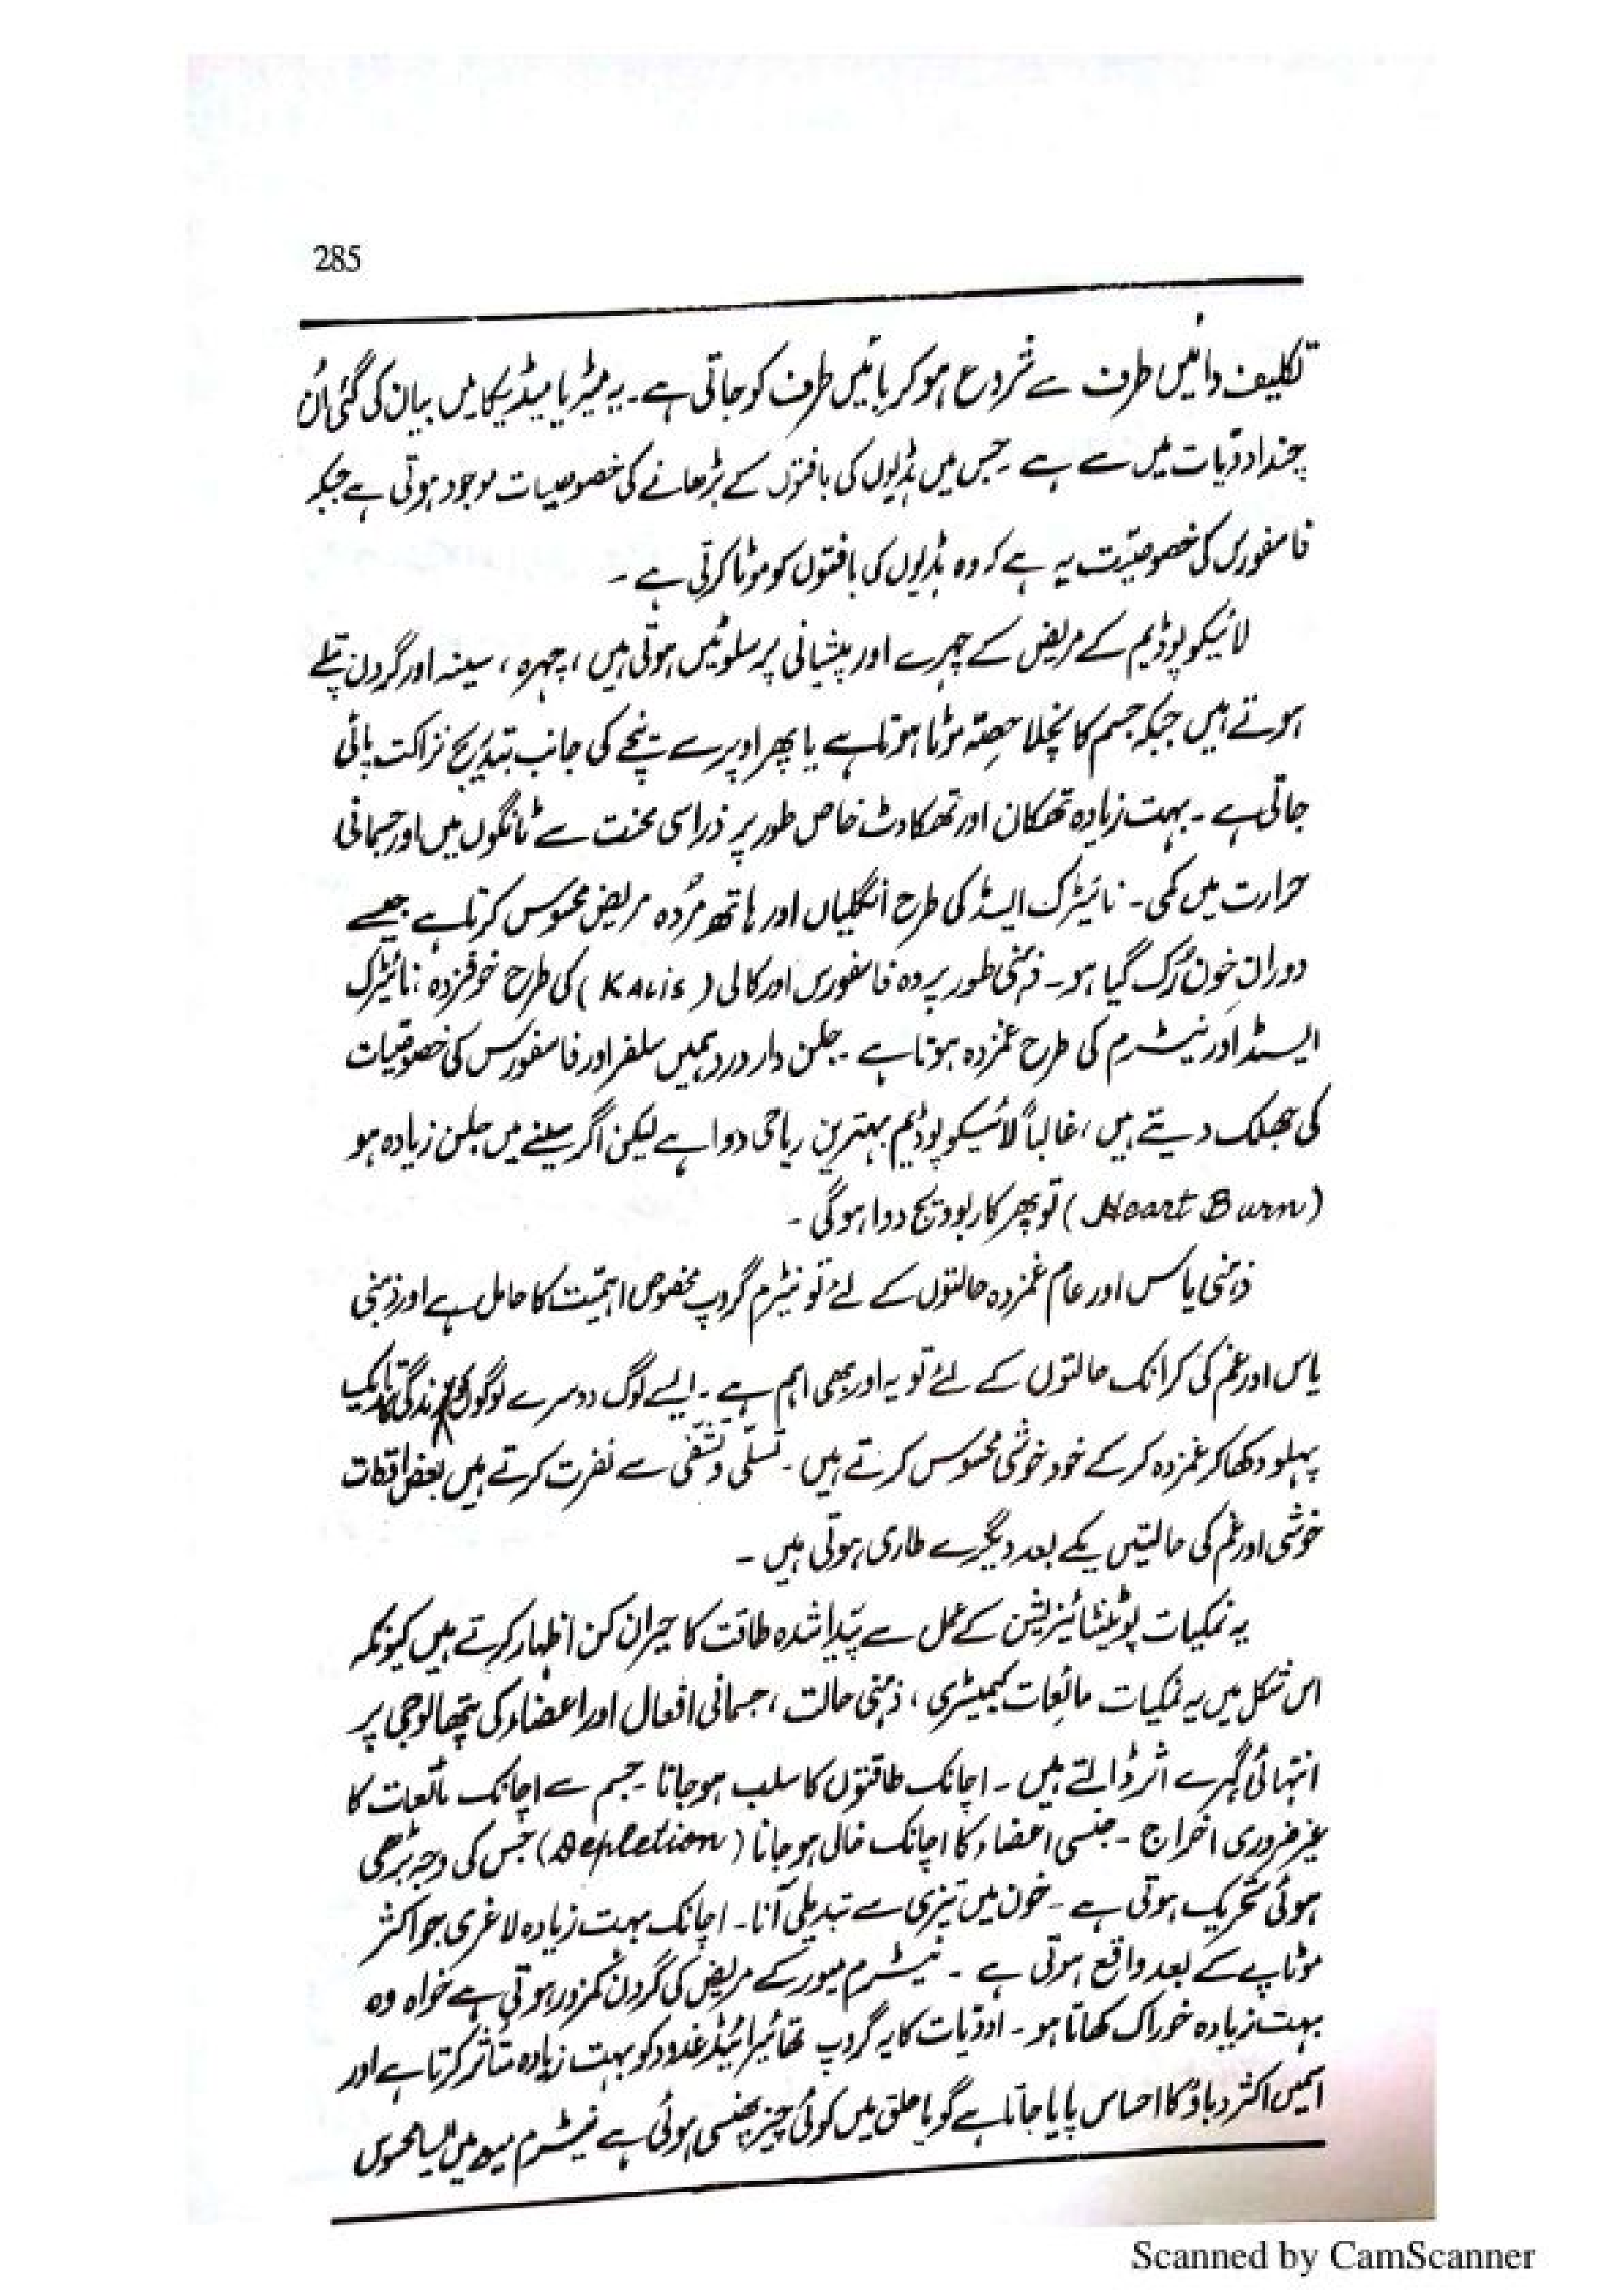 285
تکلیف دائیں طرف سے شروع ہو کر بائیں طرف کو جاتی ہے۔ یہ میٹریا میڈیکا میں بیان کی گئی اُن
چند ادویّات میں سے ہے ۔ جس میں ہڈیوں کی بافتوں کے بڑھانے کی خصوصیات موجود ہوتی ہے جبکہ
فاسفورس کی خصوصیّت یہ ہے کہ وہ ہڈیوں کی بافتوں کو موٹا کرتی ہے ۔
لائیکوپوڈیم کے مریض کے چہرے اور پیشانی پر سلوٹیں ہوتی ہیں ، چہرہ ، سینہ اور گردن پتلے
ہوتے ہیں جبکہ جسم کا نچلا حصّہ موٹا ہوتا ہے یا پھر اوپر سے نیچے کی جانب بتدریج نزاکت پائی
جاتی ہے ۔ بہت زیادہ تھکان اور تھکاوٹ خاص طور پر ذرا سی محنت سے ٹانگوں میں اور جسمانی
حرارت میں کمی ۔ نائیٹرک ایسڈ کی طرح انگلیاں اور ہاتھ مُردہ مریض محسوس کرتا ہے جیسے
دورانِ خون رُک گیا ہو ۔ ذہنی طور پر وہ فاسفورس اور کالی ( KALIS ) کی طرح خوفزدہ ، نائیٹرک
ایسڈ اور نیٹرم کی طرح غمزدہ ہوتا ہے ۔ جلن دار درد ہمیں سلفر اور فاسفورس کی خصوصیّات
کی جھلک دیتے ہیں ، غالباً لائیکوپوڈیم بہترین ریاحی دوا ہے لیکن اگر سینے میں جلن زیادہ ہو
(Heart Burn) تو پھر کاربوویج دوا ہوگی ۔
ذہنی یاس اور عام غمزدہ حالتوں کے لئے تو نیٹرم گروپ مخصوص اہمیّت کا حامل ہے اور ذہنی
یاس اور غم کی کرانک حالتوں کے لئے تو یہ اور بھی اہم ہے ۔ ایسے لوگ دوسرے لوگوں کو زندگی کا تاریک
پہلو دکھا کر غمزدہ کر کے خود خوشی محسوس کرتے ہیں ۔ تسلّی و تشفّی سے نفرت کرتے ہیں بعض اوقات
خوشی اور غم کی حالتیں یکے بعد دیگرے طاری ہوتی ہیں ۔
یہ نمکیات پوٹینشائیزیشن کے عمل سے پیدا شدہ طاقت کا حیران کن اظہار کرتے ہیں کیونکہ
اس شکل میں یہ نمکیات مائعات کیمیٹری ، ذہنی حالت ، جسمانی افعال اور اعضاء کی پتھالوجی پر
انتہائی گہرے اثر ڈالتے ہیں ۔ اچانک طاقتوں کا سلب ہو جانا ۔ جسم سے اچانک مائعات کا
غیر ضروری اخراج ۔ جنسی اعضاء کا اچانک خالی ہو جانا (Depletion) جس کی وجہ بڑھی
ہوئی تحریک ہوتی ہے ۔ خون میں تیزی سے تبدیلی آنا ۔ اچانک بہت زیادہ لاغری جو اکثر
موٹاپے کے بعد واقع ہوتی ہے ۔ نیٹرم میور کے مریض کی گردن کمزور ہوتی ہے خواہ وہ
بہت زیادہ خوراک کھاتا ہو ۔ ادویّات کا یہ گروپ تھائیرائیڈ غدود کو بہت زیادہ متاثر کرتا ہے اور
اسمیں اکثر دباؤ کا احساس پایا جاتا ہے گویا حلق میں کوئی چیز پھنسی ہوئی ہے نیٹرم میور میں ایسا محسوس
Scanned by CamScanner